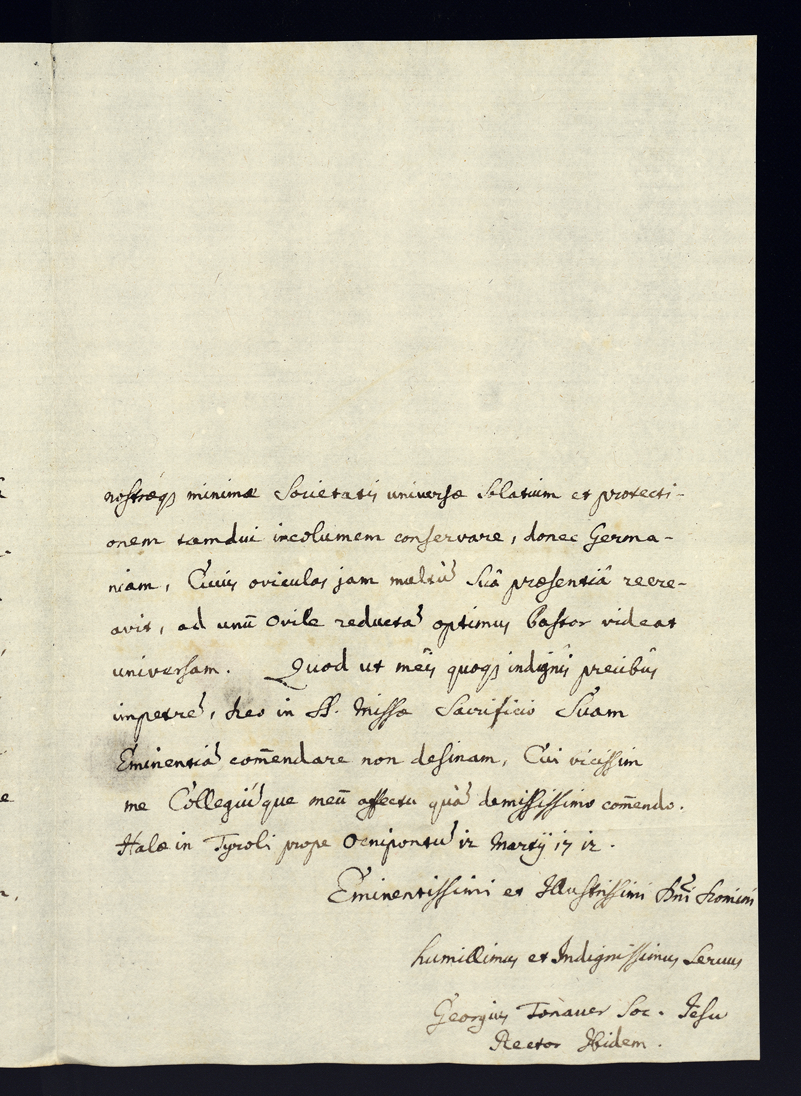 nostræq3 minimæ Societatis universæ Solatium et protecti-
onem tamdui incolumem conservare, donec Germa-
niam, Cuius oviculas jam multũ Suâ præsentiâ recre-
avit, ad unũ Ovile reductã optimus Pastor videat
universam. Quod ut meis quoq3 indignis precibus
impetrẽ, heo in SS. Missæ Sacrificio Suam
Eminentiã com̃endare non desinam, Cui vicissim
me Collegiũque meũ affectu quã demississimo com̃endo.
Halæ in Tyroli prope Oenipontũ 12 Martij 1712.
Eminentissimi et Illustrissimi Dñi Domini
humillimus et Indignissimus Servus
Georgius Tonauer Soc. Jesu
Rector Ibidem.